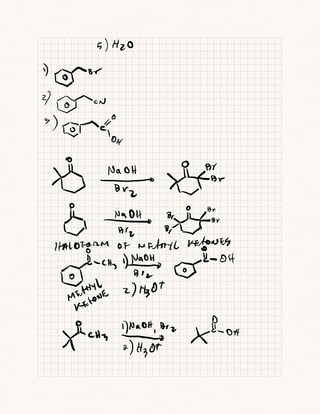 5) H2O
1) Br
2) CN
3) O
OH
O NaOH Br2 O Br Br
O NaOH Br2 Br Br O Br Br
HALOFORM OF METHYL KETONES
O CH3 1) NaOH Br2 O OH
METHYL KETONE 2) H3O+
O CH3 1) NaOH, Br2 O OH
2) H3O+